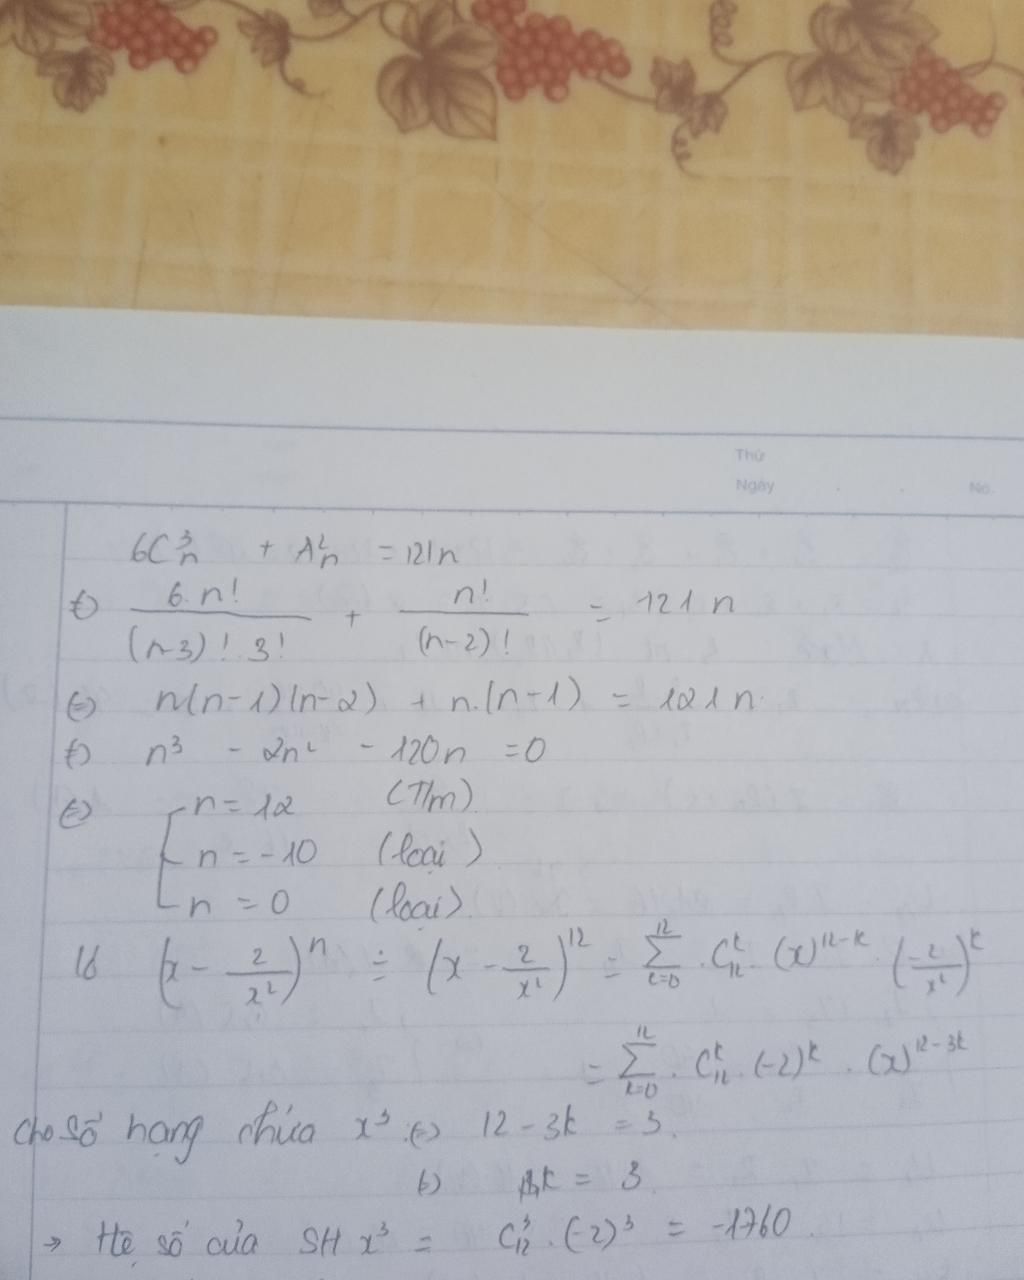 Thứ
Ngày No.
6C³ₙ + A²ₙ = 121n
⇔ 6.n!/((n-3)!.3!) + n!/((n-2)!) = 121n
⇔ n(n-1)(n-2) + n.(n-1) = 121n.
⇔ n³ - 2n² - 120n = 0
⇔ [ n = 12 (T/m)
n = -10 (loại)
n = 0 (loại).
(x - 2/x²)ⁿ = (x - 2/x²)¹² = Σ¹²ₖ₌₀ . Cᵏ₁₂ . (x)¹²⁻ᵏ . (-2/x²)ᵏ
= Σ¹²ₖ₌₀ . Cᵏ₁₂ . (-2)ᵏ . (x)¹²⁻³ᵏ
Cho số hạng chứa x³ ⇔ 12 - 3k = 3.
⇔ k = 3
→ Hệ số của SH x³ = C³₁₂ . (-2)³ = -1760.